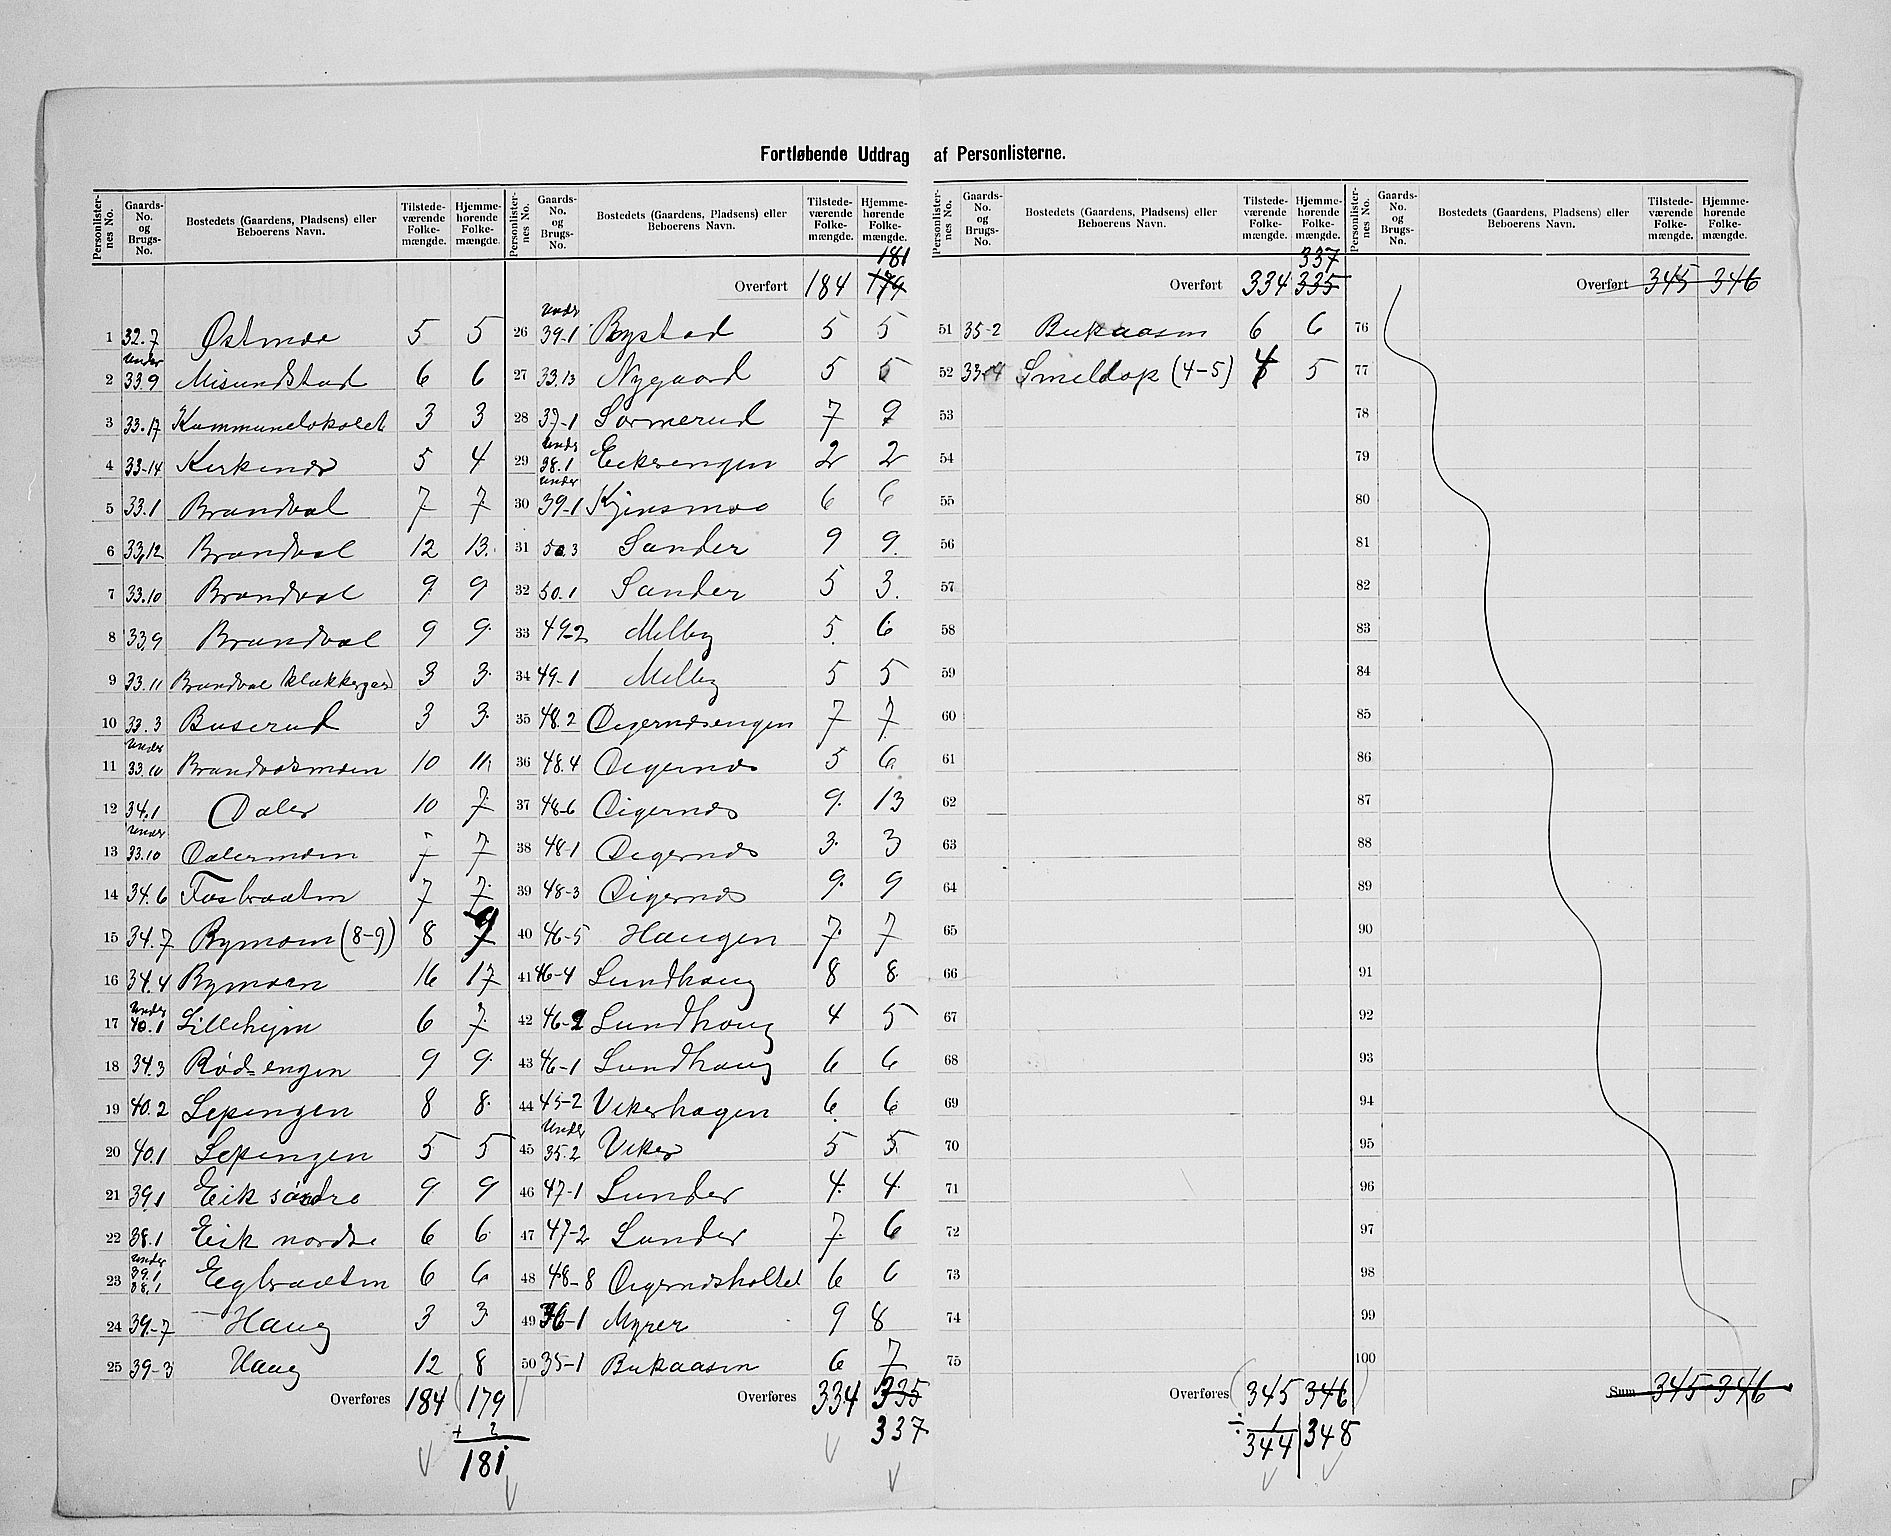 Fortløbende Uddrag af Personlisterne.
Personlister-nes No. | Gaards-No. og Brugs-No. | Bostedets (Gaardens, Pladsens) eller Beboerens Navn. | Tilstede-værende Folke-mængde. | Hjemme-hørende Folke-mængde.
1 32.7 Østmoe 5 5
2 under 33.9 Misundstad 6 6
3 33.17 Kommunelokalet 3 3
4 33-14 Kirkenær 5 4
5 33.1 Brandval 7 7
6 33.12 Brandval 12 13
7 33.10 Brandval 9 9
8 33.9 Brandval 9 9
9 33.11 Brandval klokkergaard 3 3
10 33.3 Buserud 3 3
11 under 33.10 Brandvolsmoen 10 11
12 34.1 Daler 10 7
13 under 33.10 Dalermoen 7 7
14 34.6 Fosbraaten 7 7
15 34.7 Bymoen (8-9) 8 9
16 34.4 Bymoen 16 17
17 under 40.1 Lillehejm 6 7
18 34.3 Rød-engen 9 9
19 40.2 Sepengen 8 8
20 40.1 Sepengen 5 5
21 39.1 Eik søndre 9 9
22 38.1 Eik nordre 6 6
23 under 39.1 38.1 Egbraaten 6 6
24 39-7 Haug 3 3
25 39-3 Haug 12 8
Overføres 184 179
+ 2
181
Personlister-nes No. | Gaards-No. og Brugs-No. | Bostedets (Gaardens, Pladsens) eller Beboerens Navn. | Tilstede-værende Folke-mængde. | Hjemme-hørende Folke-mængde.
181
Overført 184 179
26 under 39.1 Bystad 5 5
27 33.13 Nygaard 5 5
28 37-1 Sormerud 7 9
29 under 38.1 Eiksengen 2 2
30 under 39-1 Kjensmoe 6 6
31 50.3 Sander 9 9
32 50.1 Sander 5 3
33 49-2 Melby 5 6
34 49-1 Melby 5 5
35 48.2 Digernæsengen 7 7
36 48.4 Digernæs 5 6
37 48-6 Digernæs 9 13
38 48-1 Digernæs 3 3
39 48-3 Digernæs 9 9
40 46-5 Haugen 7 7
41 46-4 Lundhaug 8 8
42 46-2 Lundhaug 4 5
43 46-1 Lundhaug 6 6
44 45-2 Vikerhagen 6 6
45 under 35.2 Viker 5 5
46 47-1 Lunder 4 4
47 47-2 Lunder 7 6
48 48-8 Digernæsholtet 6 6
49 36-1 Myrer 9 8
50 35-1 Bukaasen 6 7
Overføres 334 335
337
Personlister-nes No. | Gaards-No. og Brugs-No. | Bostedets (Gaardens, Pladsens) eller Beboerens Navn. | Tilstede-værende Folke-mængde. | Hjemme-hørende Folke-mængde.
337
Overført 334 335
51 35-2 Bukaasen 6 6
52 33-4 Smeldop (4-5) 4 5
53
54
55
56
57
58
59
60
61
62
63
64
65
66
67
68
69
70
71
72
73
74
75
Overføres 345 346
÷ 1
344 348
Personlister-nes No. | Gaards-No. og Brugs-No. | Bostedets (Gaardens, Pladsens) eller Beboerens Navn. | Tilstede-værende Folke-mængde. | Hjemme-hørende Folke-mængde.
Overført 345 346
76
77
78
79
80
81
82
83
84
85
86
87
88
89
90
91
92
93
94
95
96
97
98
99
100
Sum 345 346